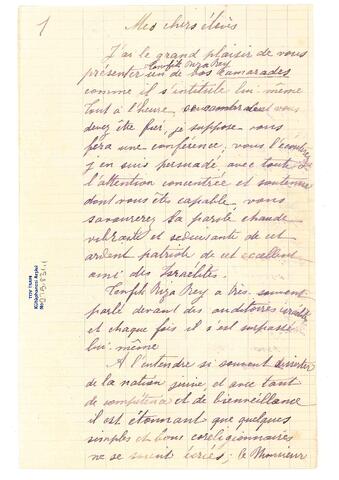 1
Mes chers élèves
J'ai le grand plaisir de vous
Tevfik Riza Bey
présenter un de vos camarades
comme il s'intitule lui-même
tout à l'heure, ce camarade dont vous
devez être fier, je suppose vous
fera une conférence, vous l'écouterez
j'en suis persuadé avec toute
l'attention concentrée et soutenue
dont vous êtes capable, vous
savourerez la parole chaude
vibrante et séduisante de cet
ardent patriote de cet excellent
ami des Israélites.
Tevfik Riza Bey a très souvent
parlé devant des auditoires
et chaque fois il s'est surpassé
lui-même
A l'entendre si souvent disserter
de la nation juive, et avec tant
de compétence et de bienveillance
il est étonnant que quelques
simples et bons coreligionnaires
ne se soient écriés; le Monsieur
TÜV TSAM
Kütüphanesi Arşivi
No